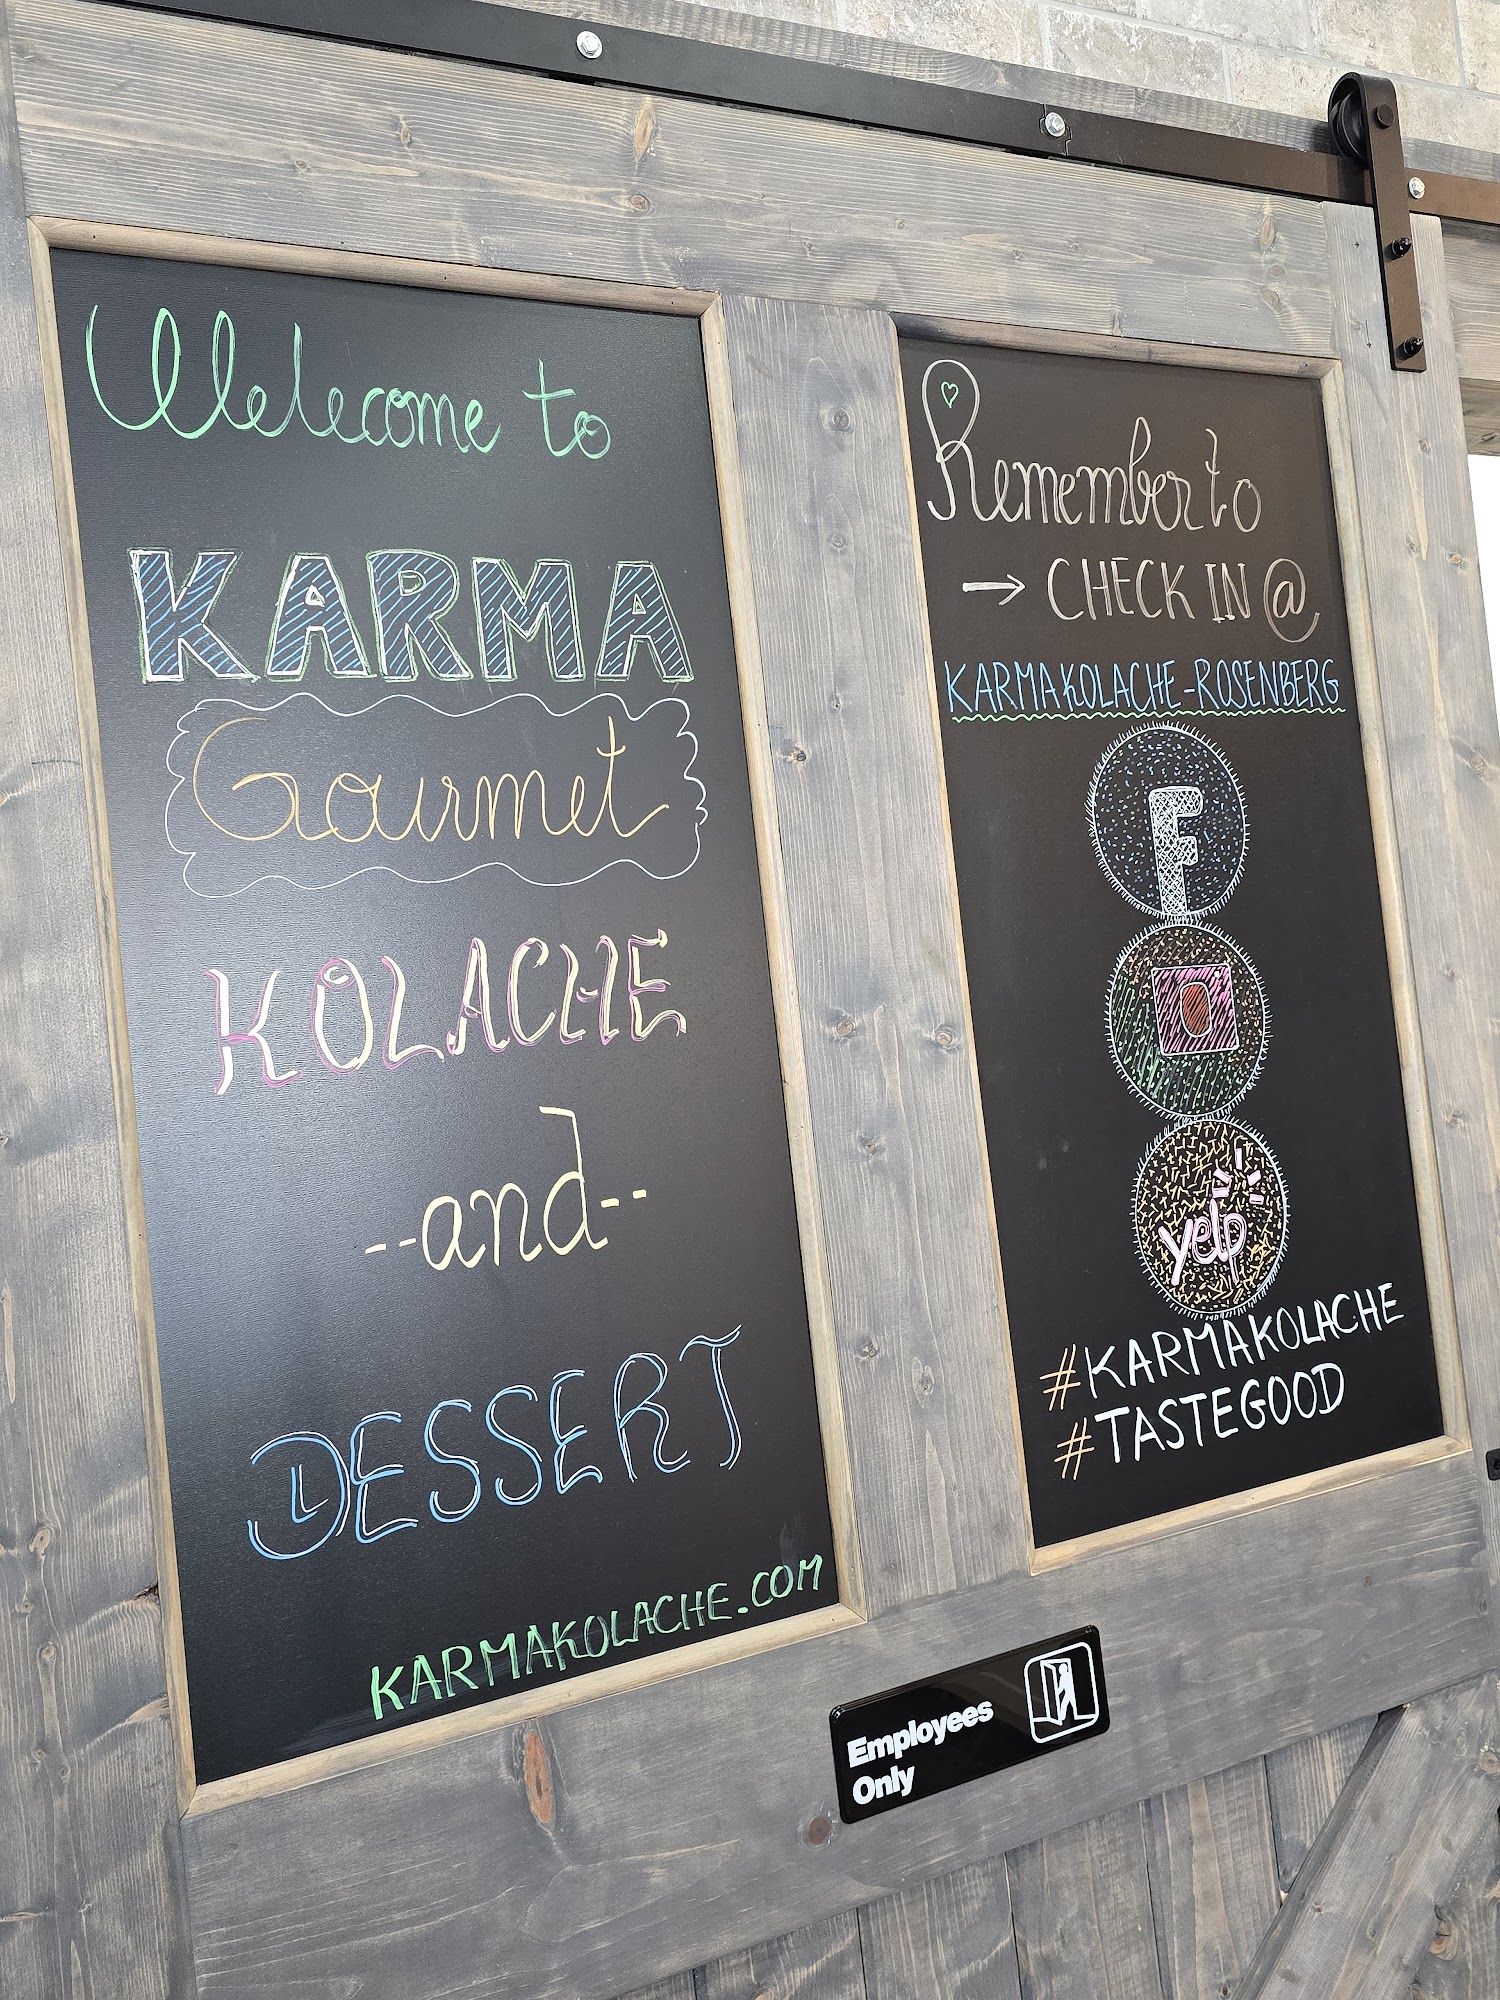 Welcome to
KARMA
Gourmet
KOLACHE
--and--
DESSERT
KARMAKOLACHE.COM
Remember to
→ CHECK IN @
KARMAKOLACHE-ROSENBERG
F
yelp
#KARMAKOLACHE
#TASTEGOOD
Employees
Only